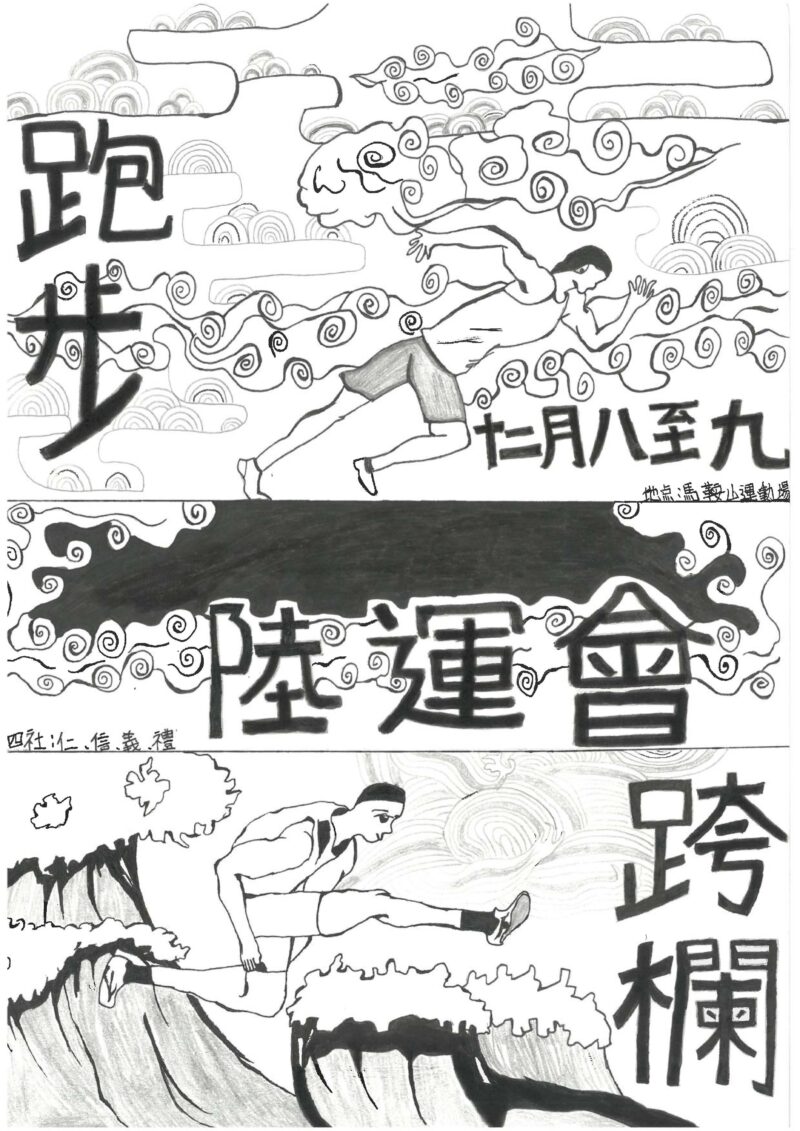 跑步
十二月八至九
地点:馬鞍山運動場
陸運會
四社:仁、信、義、禮
跨欄